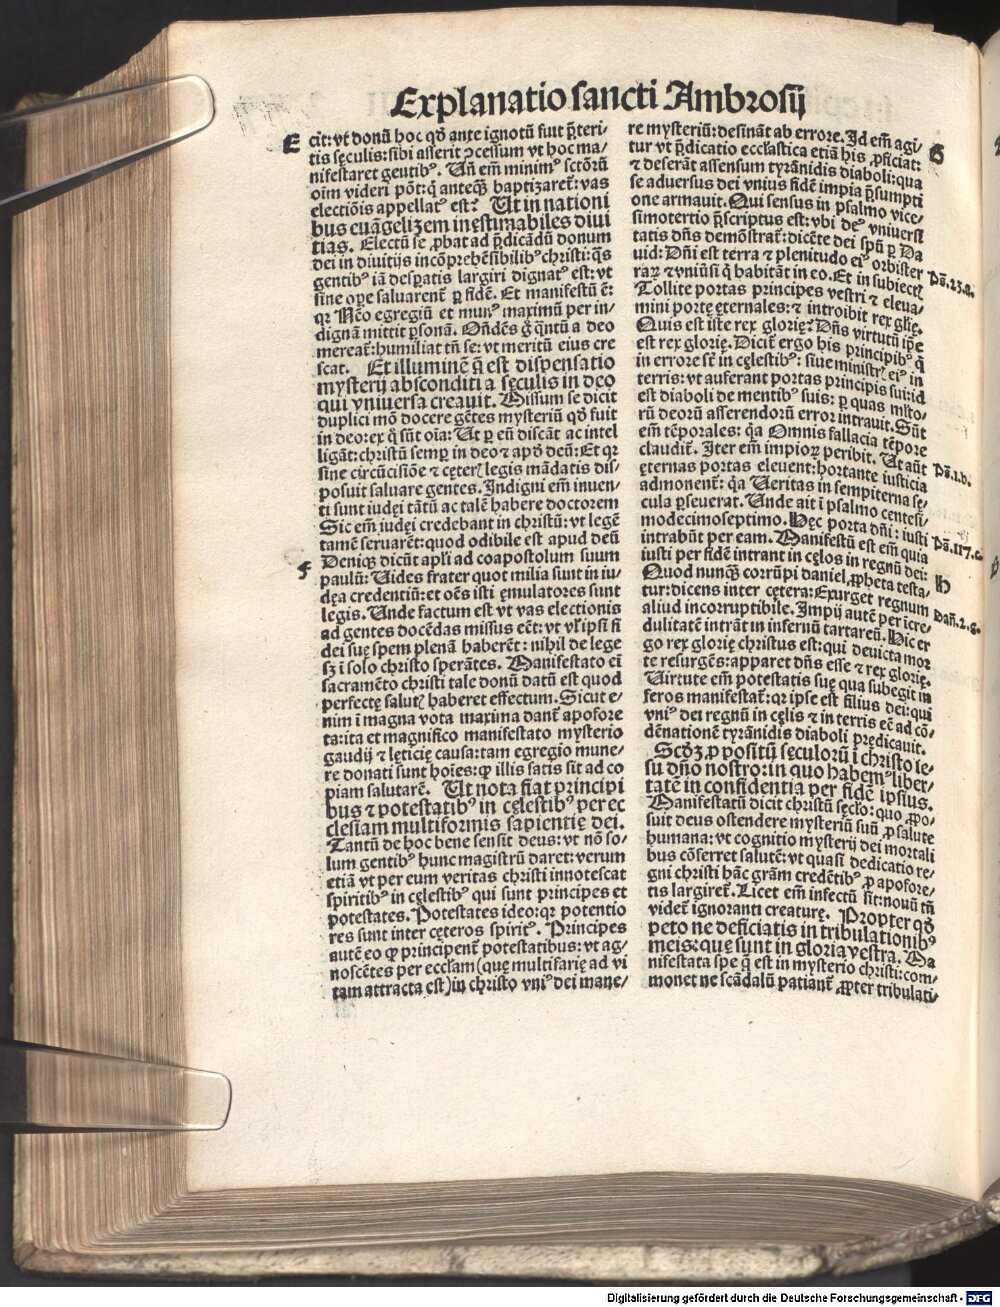 Explanatio sancti Ambrosij
E
cit: vt donũ hoc qđ ante ignotũ fuit p̃teri/
tis sęculis: sibi asserit ↄcessum vt hoc ma/
nifestaret gentibꝰ. Uñ em̃ minimꝰ sctõrũ
oim̃ videri põt: q̇ anteq̃ꝫ baptizaret̃: vas
electiõis appellatꝰ est? Ut in nationi
bus euãgelizem inęstimabiles diui
tias. Electũ se ꝓbat ad p̃dicãdũ donum
dei in diuitijs incõprehẽsibilibꝰ christi: q̃s
gentibꝰ iã desꝑatis largiri dignatꝰ est: vt
sine oꝑe saluarent̃ ꝑ fidẽ. Et manifestũ ẽ:
qꝛ Nẽo egregiũ et munꝰ maximũ per in/
dignã mittit ꝑsonã. Oñdẽs g̊ q̃ntũ a deo
mereat̃: humiliat tñ se: vt meritũ eius cre
scat. Et illuminẽ q̃ est dispensatio
mysterij absconditi a sęculis in deo
qui vniuersa creauit. Missum se dicit
duplici mõ docere gẽtes mysteriũ qđ fuit
in deo: ex q̊ sũt oĩa: Ut ꝑ eũ discãt ac intel
ligãt: christũ semꝑ in deo ⁊ apđ deũ: Et qꝛ
sine circũcisiõe ⁊ cęterꝭ legis mãdatis dis/
posuit saluare gentes. Indigni em̃ inuen/
ti sunt iudęi tãtũ ac talẽ habere doctorem
Sic em̃ iudęi credebant in christũ: vt legẽ
tamẽ seruarẽt: quod odibile est apud deũ
F
Deniqꝫ dicũt apl̃i ad coapostolum suum
paulũ: Uides frater quot milia sunt in iu/
dęa credentiũ: et oẽs isti ęmulatores sunt
legis. Unde factum est vt vas electionis
ad gentes docẽdas missus eẽt: vt vl̃ ipsi fi
dei suę spem plenã haberẽt: nihil de lege
sꝫ ĩ solo christo sperãtes. Manifestato eĩ
sacramẽto christi tale donũ datũ est quod
perfectę salutꝭ haberet effectum. Sicut e/
nim ĩ magna vota maxima dant̃ apofore
ta: ita et magnifico manifestato mysterio
gaudij ⁊ lęticię causa: tam egregio mune/
re donati sunt hoĩes: ꝙ illis satis sit ad co
piam salutarẽ. Ut nota fiat principi
bus ⁊ potestatibꝰ in cęlestibꝰ per ec
clesiam multiformis sapientię dei.
Tantũ de hoc bene sensit deus: vt nõ so/
lum gentibꝰ hunc magistrũ daret: verum
etiã vt per eum veritas christi innotescat
spiritibꝰ in cęlestibꝰ qui sunt principes et
potestates. Potestates ideo: qꝛ potentio
res sunt inter cęteros spiritꝰ. Principes
autẽ eo ꝙ principent̃ potestatibus: vt ag/
noscẽtes per eccĺam (quę multifarię ad vi
tam attracta est) in christo vniꝰ dei mane/
re mysteriũ: desinãt ab errore. Id em̃ agi/
G
tur vt p̃dicatio eccĺastica etiã his ꝓficiat:
⁊ deserãt assensum tyrãnidis diaboli: qua
se aduersus dei vnius fidẽ impia p̃sumpti
one armauit. Qui sensus in psalmo vice/
simotertio p̃scriptus est: vbi deꝰ vniuersi
tatis dñs demõstrat̃: dicẽte dei spũ ꝑ Da
uid: Dñi est terra ⁊ plenitudo eiꝰ orbis ter
Ps̃.23.a.
raꝝ ⁊ vniũsi q̇ habitãt in eo. Et in subiectꝭ
Tollite portas principes vestri ⁊ eleua/
mini portę ęternales: ⁊ introibit rex glię.
Quis est iste rex glorię? Dñs virtutũ ip̃e
est rex glorię. Dicit̃ ergo his principibꝰ q̇
in errore st̃ in cęlestibꝰ: siue ministrꝭ eiꝰ in
terris: vt auferant portas principis sui: id
est diaboli de mentibꝰ suis: ꝑ quas mĩto/
rũ deorũ asserendorũ error intrauit. Sũt
em̃ tẽporales: q̇a Omnis fallacia tẽpore
claudit̃. Iter em̃ impioꝝ peribit. Ut aũt
Ps̃.1.b.
ęternas portas eleuent: hortante iusticia
admonent̃: q̇a Ueritas in sempiterna sę/
cula ꝑseuerat. Unde ait ĩ psalmo centesi/
modecimoseptimo. Hęc porta dñi: iusti
Ps̃.117.c.
intrabũt per eam. Manifestũ est em̃ quia
iusti per fidẽ intrant in cęlos in regnũ dei:
H
Quod nunqꝫ corrũpi daniel ꝓpheta testa/
tur: dicens inter cętera: Exurget regnum
Dañ.2.g.
aliud incorruptibile. Impij autẽ per icre/
dulitatẽ intrãt in infernũ tartareũ. Hic er
go rex glorię christus est: qui deuicta mor
te resurgẽs: apparet dñs esse ⁊ rex glorię.
Uirtute em̃ potestatis suę qua subegit in
feros manifestat̃: qꝛ ipse est filius dei: qui
vniꝰ dei regnũ in cęlis ⁊ in terris eẽ ad cõ/
dẽnationẽ tyrãnidis diaboli prędicauit.
Scđꝫ ꝓpositũ sęculorũ ĩ christo ie/
su dño nostro: in quo habemꝰ liber/
tatẽ in confidentia per fidẽ ipsius.
Manifestatũ dicit christũ sęclo: quo ꝓpo/
suit deus ostendere mysteriũ suũ ꝓ salute
humana: vt cognitio mysterij dei mortali
bus cõferret salutẽ: vt quasi dedicatio re/
gni christi hãc grãm credẽtibꝰ ꝓ apofore/
tis largiret̃. Licet em̃ infectũ sit: nouũ tñ
videt̃ ignoranti creaturę. Propter qđ
peto ne deficiatis in tribulationibꝰ
meis: quę sunt in gloria vestra. Ma
nifestata spe q̃ est in mysterio christi: com/
monet ne scãdalũ patiant̃ ꝓpter tribulati/
Digitalisierung gefördert durch die Deutsche Forschungsgemeinschaft - DFG